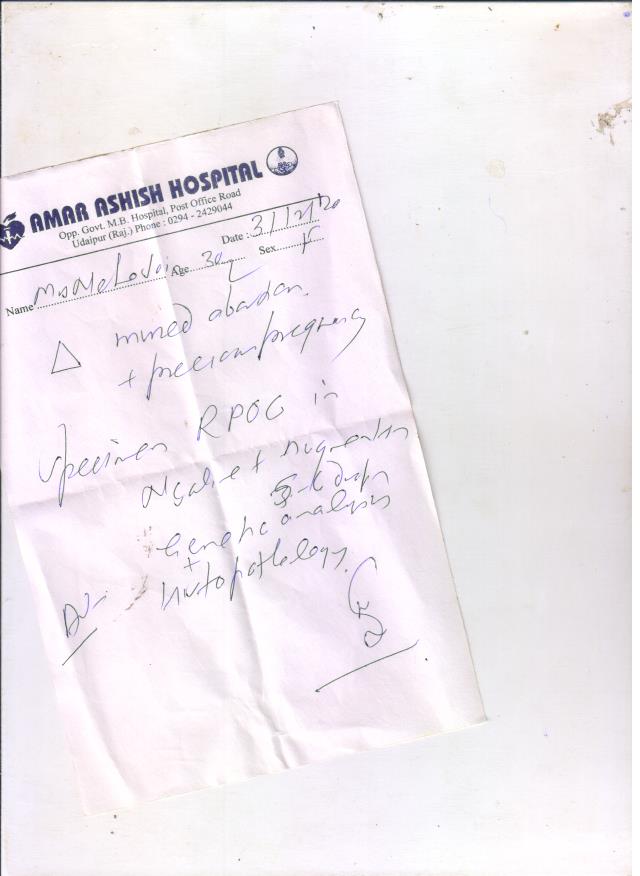 AMAR ASHISH HOSPITAL
Opp. Govt. M.B. Hospital, Post Office Road
Udaipur (Raj.) Phone : 0294 - 2429044
Date :
Name Age 30 Sex F
Δ missed abortion
+ precious pregnancy
Specimen RPOC in
Nsaline +
Genetic analysis
+
histopathology.
Adv